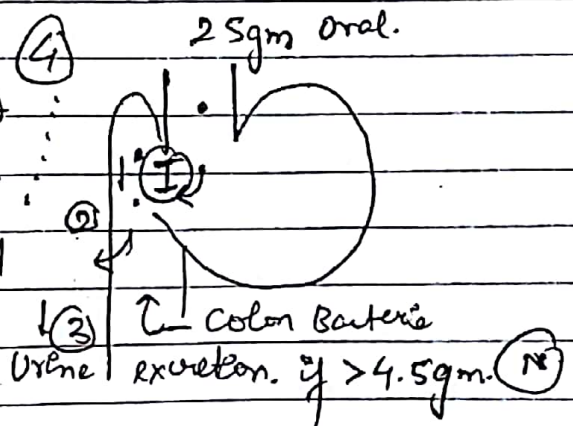 ④ 25gm oral.
I
②
↓③ Colon Bacteria
Urine excretion. if >4.5gm. Ⓝ